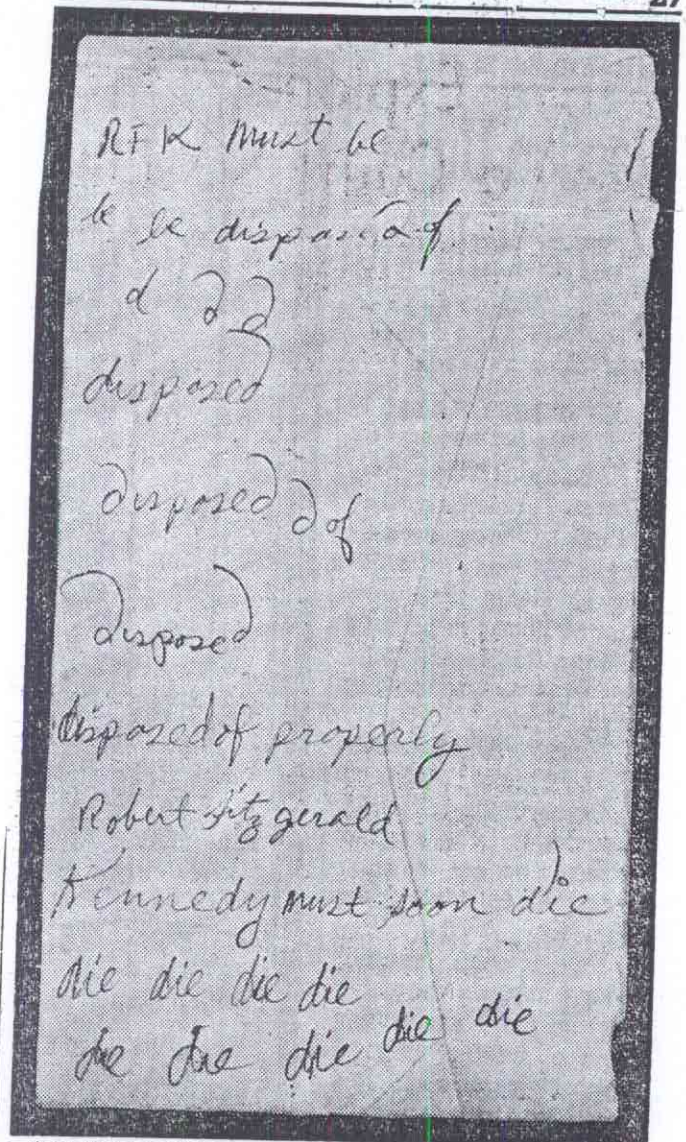 27
RFK must be
be be disposed of
d d d
disposed
disposed d of
disposed
disposed of properly
Robert Fitzgerald
Kennedy must soon die
die die die die
die die die die die